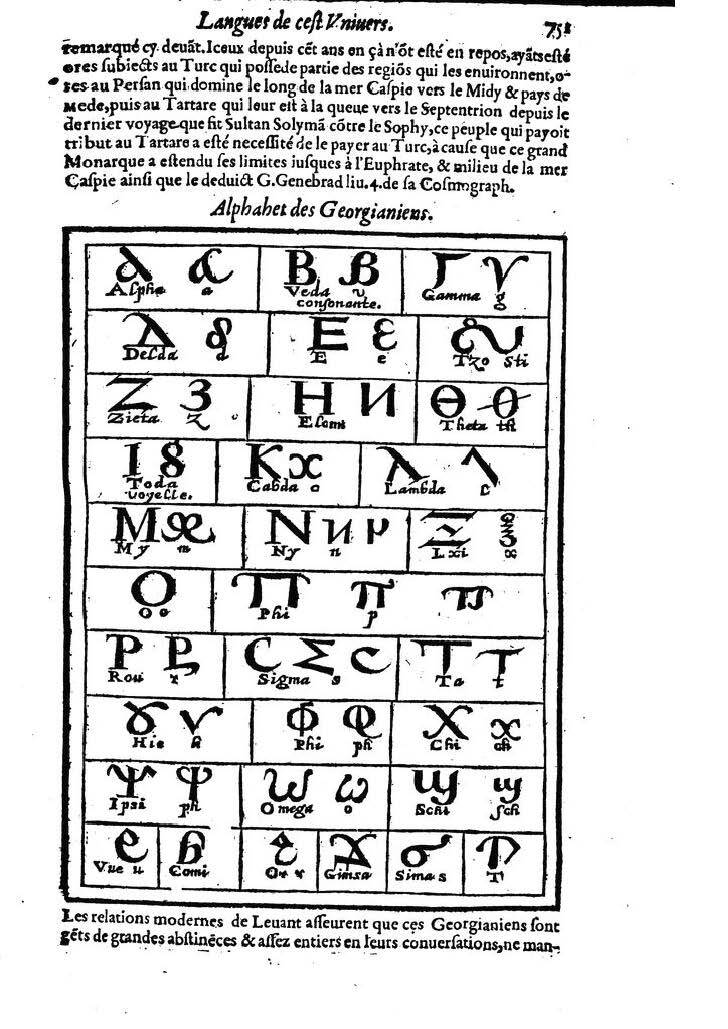 Langues de cest Vniuers. 751
remarqué cy deuãt. Iceux depuis cẽt ans en çà n'õt esté en repos, ayãts esté
ores subiects au Turc qui possede partie des regiõs qui les enuironnent, o-
res au Persan qui domine le long de la mer Caspie vers le Midy & pays de
Mede, puis au Tartare qui leur est à la queue vers le Septentrion depuis le
dernier voyage que fit Sultan Solymã cõtre le Sophy, ce peuple qui payoit
tribut au Tartare a esté necessité de le payer au Turc, à cause que ce grand
Monarque a estendu ses limites iusques à l'Euphrate, & milieu de la mer
Caspie ainsi que le deduict G. Genebrad liu. 4. de sa Cosmograph.
Alphabet des Georgianiens.
Alpha a Veda v consonante. Gamma g
Delda d E e Tzo sti
Zieta z Elomi Theta th
Ioda voyelle. Cabda c Lambda l
My m Ny n Lxi x
O o Phi p
Rou r Sigma s Ta t
Hie h Phi ph Chi ch
Ipsi ph Omega o Schi sch
Vue u Comi Gimsa Sima s T
Les relations modernes de Leuant asseurent que ces Georgianiens sont
gẽts de grandes abstinẽces & assez entiers en leurs conuersations, ne man-